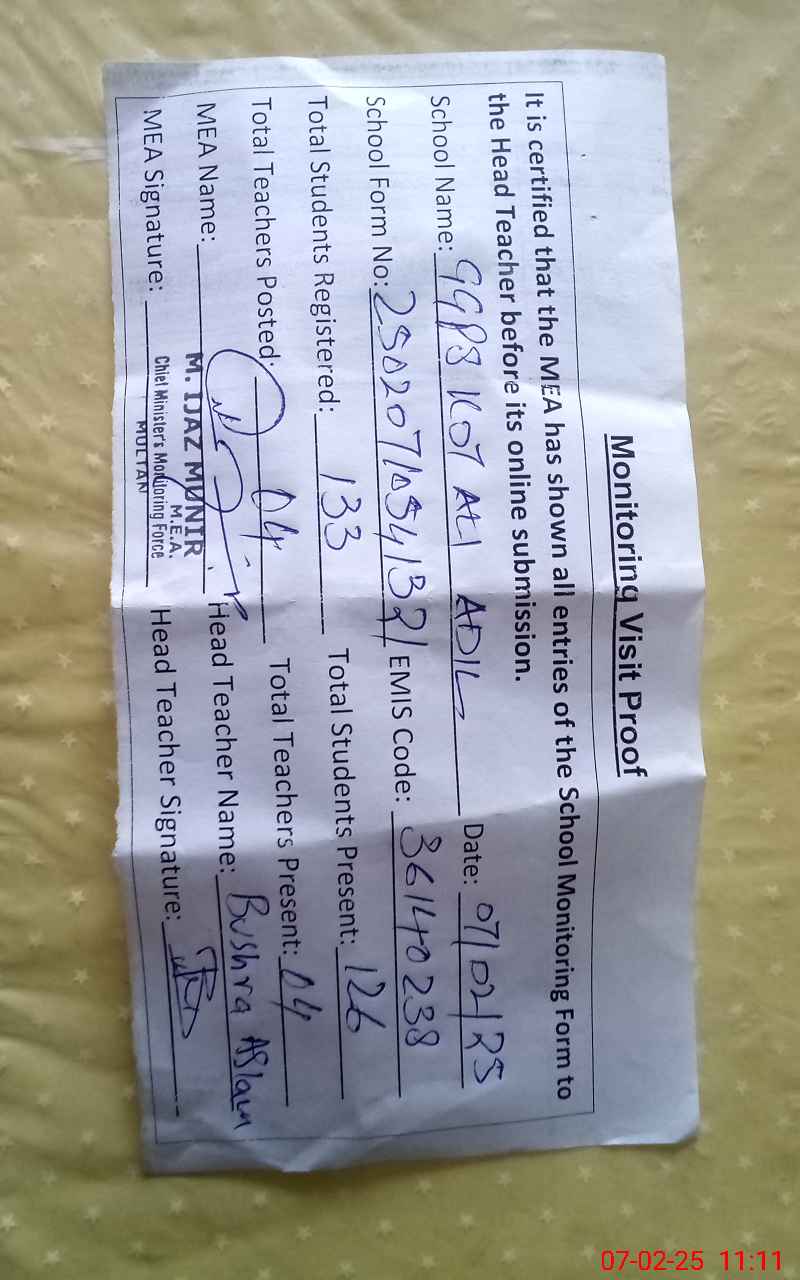 Monitoring Visit Proof
It is certified that the MEA has shown all entries of the School Monitoring Form to
the Head Teacher before its online submission.
School Name: GGPS KOT ALI ADIL Date: 07/02/25
School Form No: 25020710541321 EMIS Code: 36140238
Total Students Registered: 133 Total Students Present: 126
Total Teachers Posted: 04 Total Teachers Present: 04
MEA Name: Head Teacher Name: Bushra Aslam
M. IJAZ MUNIR
M.E.A.
MEA Signature: Head Teacher Signature:
Chief Minister's Monitoring Force
MULTAN
07-02-25 11:11